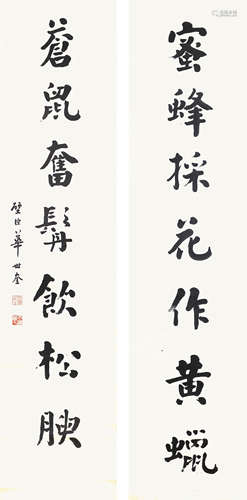 蜜蜂採花作黃蠟
蒼鼠奮髯飲松腴
璧臣華世奎